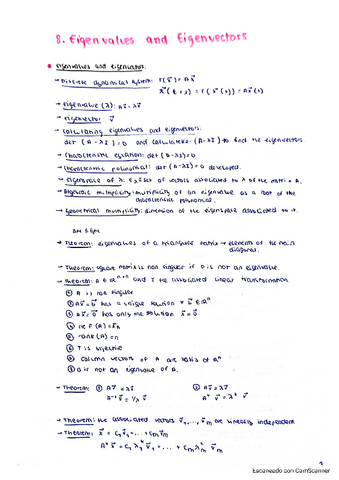 8. Eigenvalues and Eigenvectors
Eigenvalues and eigenvectors:
→ Discrete dynamical system: T(x⃗) = Ax⃗
x⃗(t+1) = T(x⃗(t)) = Ax⃗(t)
→ eigenvalue (λ): Av⃗ = λv⃗
→ eigenvector: v⃗
→ calculating eigenvalues and eigenvectors:
det (A - λI) = 0 and calculate (A - λI) to find the eigenvectors.
→ Characteristic equation: det (A - λI) = 0
→ characteristic polynomial: det (A - λI) = 0 developed.
→ eigenspace of λ: set of vectors associated to λ of the matrix A.
→ Algebraic multiplicity: multiplicity of an eigenvalue as a root of the
characteristic polynomial.
→ Geometrical multiplicity: dimension of the eigenspace associated to it.
→ Theorem: eigenvalues of a triangular matrix → elements of the main
diagonal.
→ Theorem: square matrix is non singular if 0 is not an eigenvalue.
→ Theorem: A ∈ ℝⁿˣⁿ and T the associated linear transformation
① A is not singular
② Ax⃗ = b⃗ has a unique solution ∀ b⃗ ∈ ℝⁿ
③ Ax⃗ = 0⃗ has only one solution x⃗ = 0⃗
④ rref (A) = In
⑤ rank (A) = n
⑥ T is bijective
⑦ column vectors of A are basis of ℝⁿ
⑧ 0 is not an eigenvalue of A.
→ Theorem: ① Av⃗ = λv⃗ ② Av⃗ = λv⃗
A⁻¹v⃗ = 1/λ v⃗ Aᵏ v⃗ = λᵏ v⃗
→ Theorem: the associated vectors v⃗₁, ..., v⃗m are linearly independent
→ Theorem: x⃗ = c₁v⃗₁ + ... + cmv⃗m
Aᵏ x⃗ = c₁ λ₁ᵏ v⃗₁ + ... + cm λmᵏ v⃗m
1
Escaneado con CamScanner